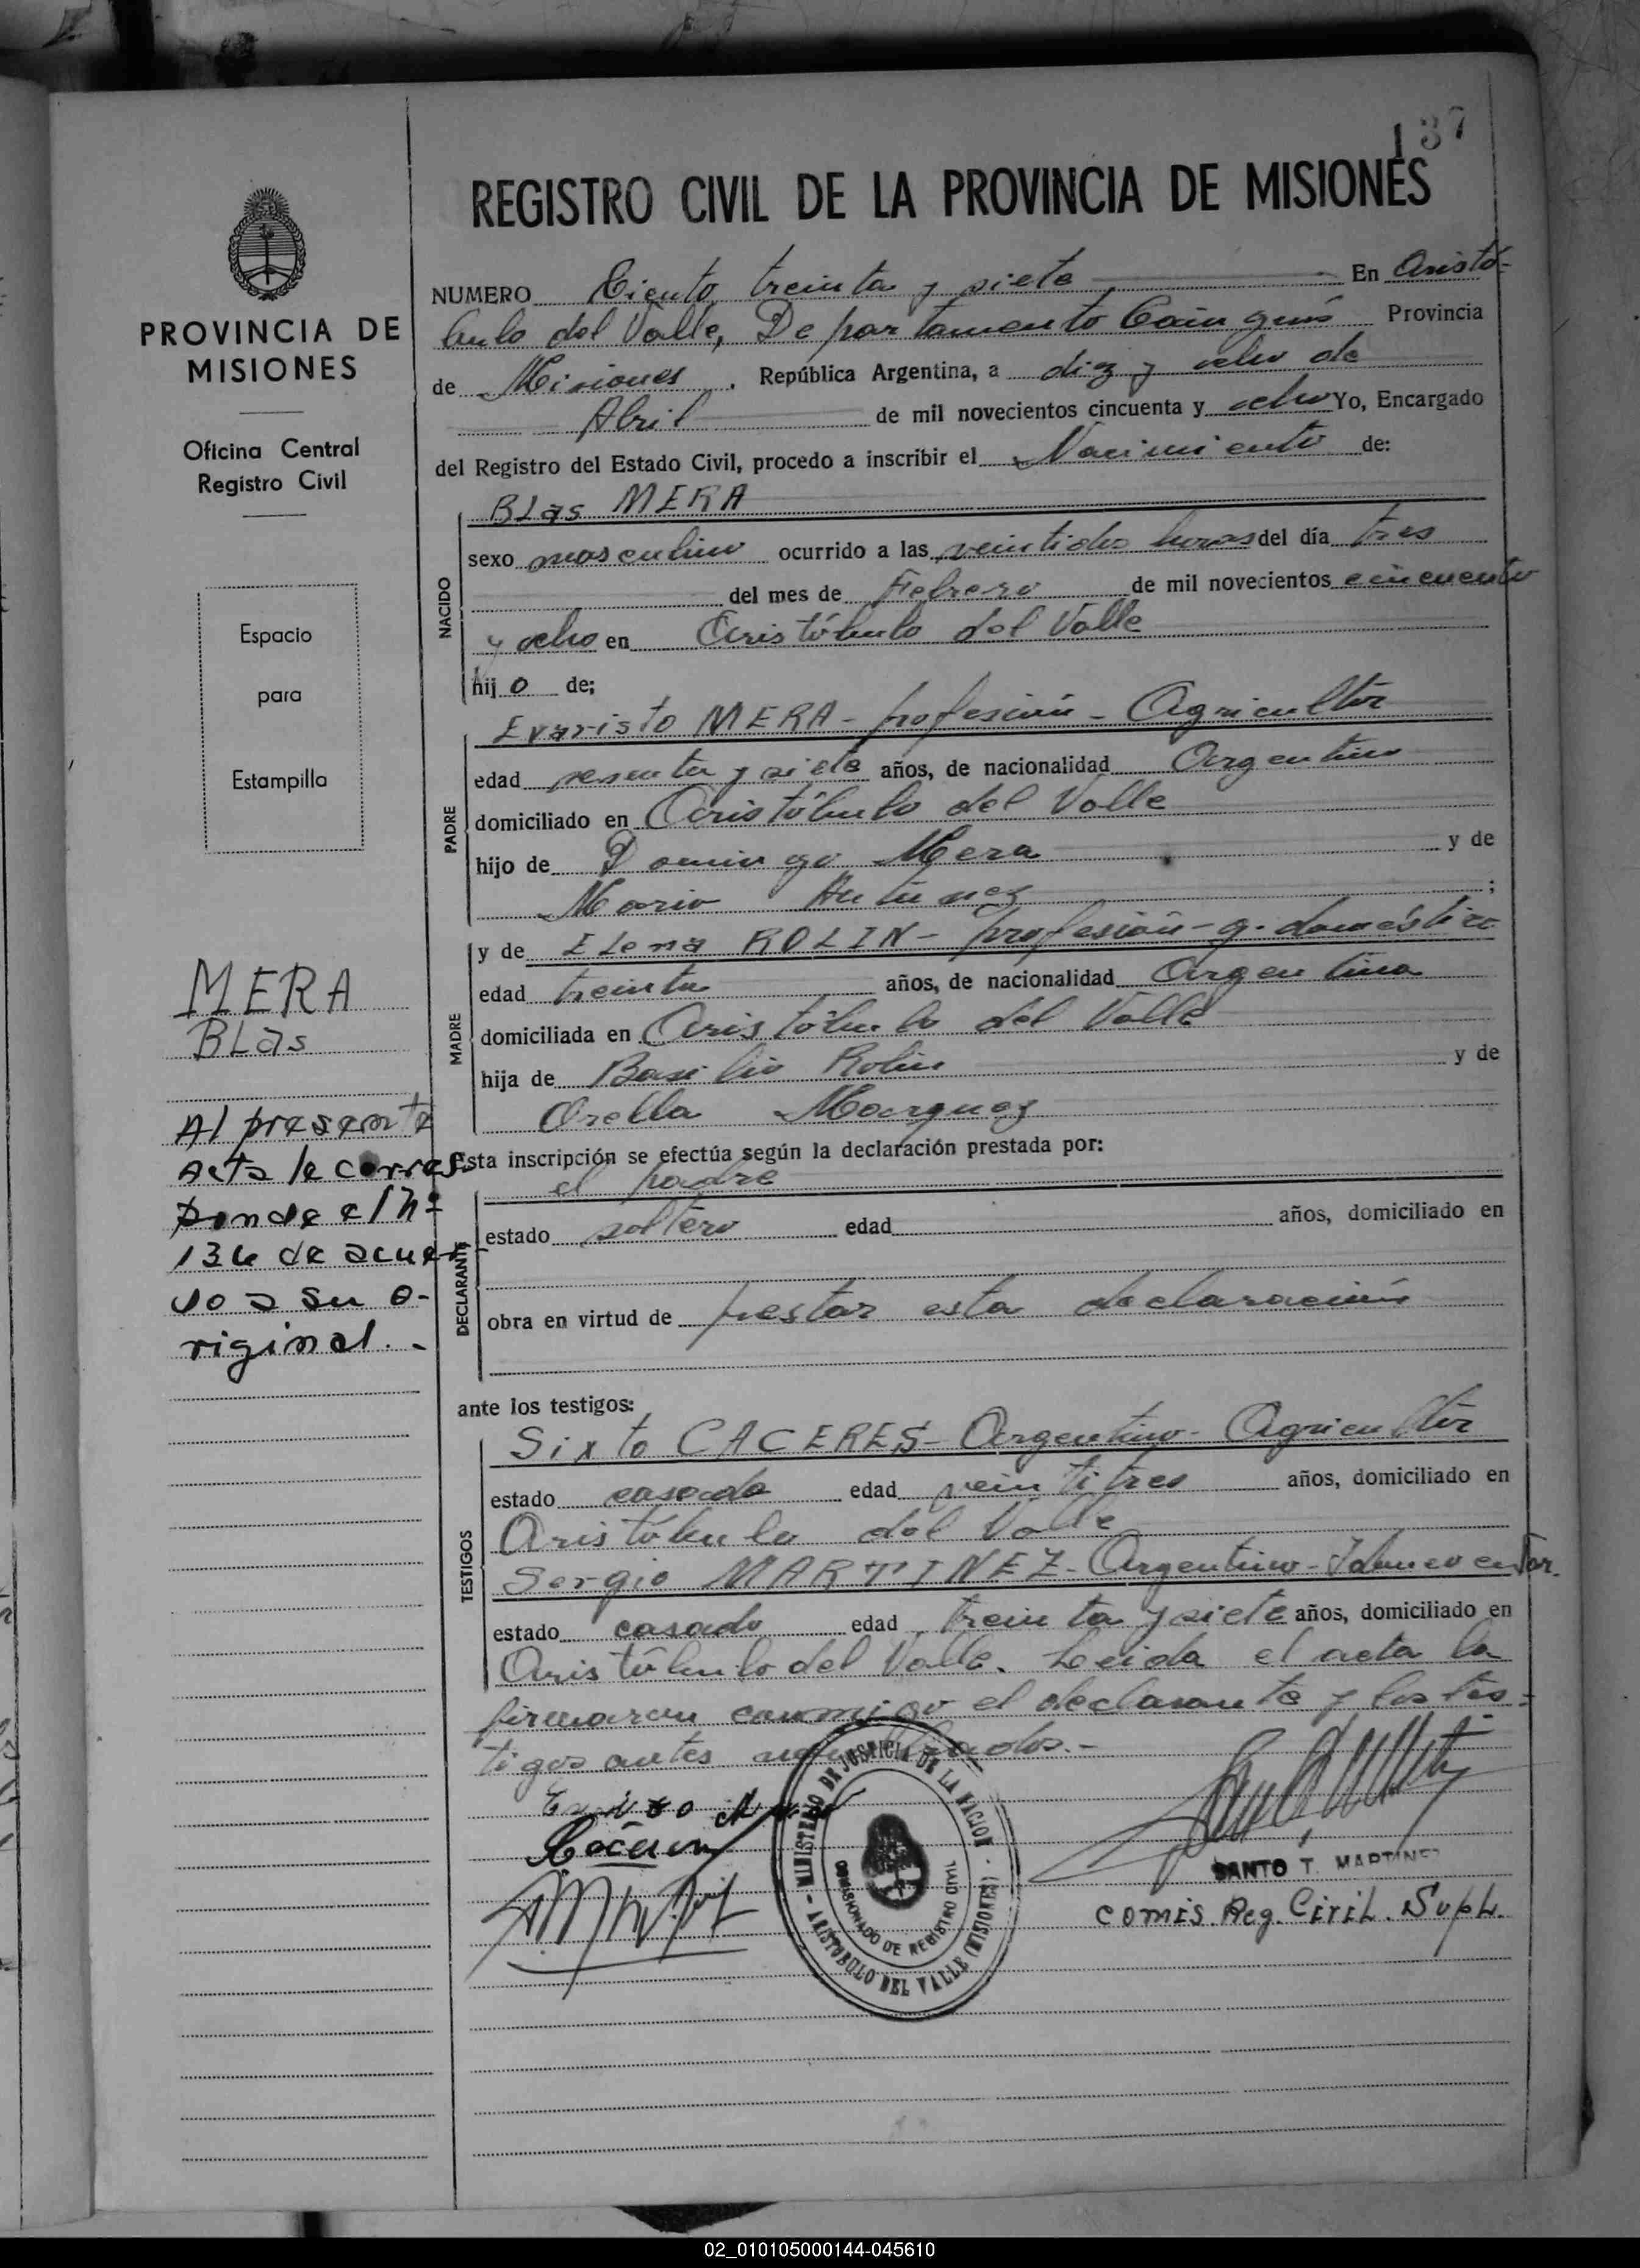 137
REGISTRO CIVIL DE LA PROVINCIA DE MISIONES
PROVINCIA DE
MISIONES
Oficina Central
Registro Civil
Espacio
para
Estampilla
MERA
BLas
Al presente
Acta le corres-
ponde el Nº
136 de acuer-
do a su o-
riginal.-
NUMERO Ciento treinta y siete En Aristó-
bulo del Valle, Departamento Cainguás Provincia
de Misiones, República Argentina, a diez y ocho de
Abril de mil novecientos cincuenta y ocho Yo, Encargado
del Registro del Estado Civil, procedo a inscribir el Nacimiento de:
NACIDO
BLas MERA
sexo masculino ocurrido a las veintidos horas del día tres
del mes de Febrero de mil novecientos cincuenta
y ocho en Aristóbulo del Valle
hijo de;
PADRE
Evaristo MERA - profesión - Agricultor
edad sesenta y siete años, de nacionalidad Argentino
domiciliado en Aristóbulo del Valle
hijo de Domingo Mera y de
Maria Antúnez ;
MADRE
y de ELena ROLIN - profesión - q. doméstico
edad treinta años, de nacionalidad Argentina
domiciliada en Aristóbulo del Valle
hija de Basilio Rolin y de
Orella Marquez
Esta inscripción se efectúa según la declaración prestada por:
DECLARANTE
el padre
estado soltero edad años, domiciliado en
obra en virtud de prestar esta declaración
ante los testigos:
TESTIGOS
Sixto CACERES - Argentino - Agricultor
estado casado edad veintitres años, domiciliado en
Aristóbulo del Valle
Sergio MARTINEZ - Argentino
estado casado edad treinta y siete años, domiciliado en
Aristóbulo del Valle. Leida el acta la
firmaron conmigo el declarante y los tes-
tigos antes .-
MINISTERIO DE JUSTICIA DE LA NACION
COMISIONADO DE REGISTRO CIVIL
ARISTOBULO DEL VALLE (MISIONES)
SANTO T. MARTINEZ
Comis. Reg. CiviL. SupL.
02_010105000144-045610